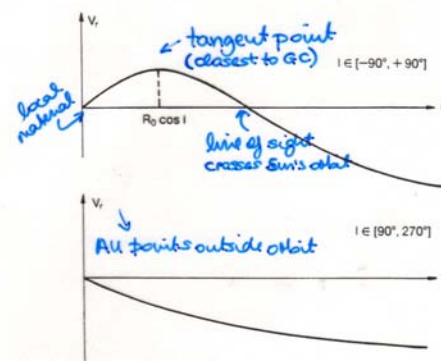 V_r
tangent point
(closest to GC)
l ∈ [−90°, +90°]
local
material
R₀ cos l
line of sight
crosses Sun's orbit
V_r
All points outside orbit
l ∈ [90°, 270°]